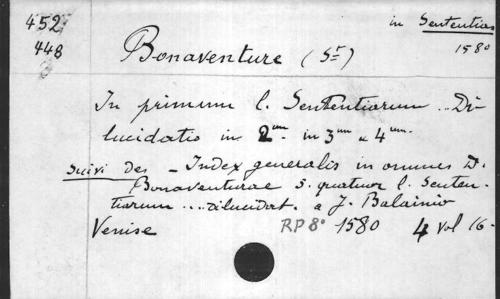 452 in Sententias
448 1580
Bonaventure (St)
In primum l. Sententiarum .. Di-
lucidatio in 2um in 3um & 4um.
Suivi des - Index generalis in omnes D.
Bonaventurae S. quatuor l. Senten-
tiarum ... dilucidat. a J. Balainio
Venise RP 8° 1580 4 vol 16-